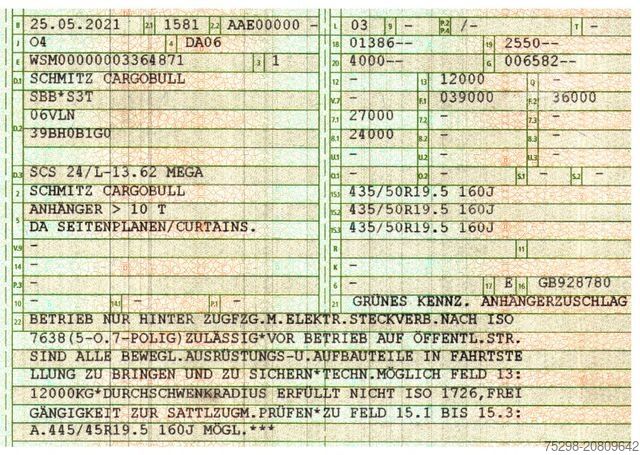 B 25.05.2021 2.1 1581 2.2 AAE00000 -
J O4 4 DA06
E WSM00000003364871 3 1
D.1 SCHMITZ CARGOBULL
D.2 SBB*S3T
06VLN
39BH0B1G0
D.3 SCS 24/L-13.62 MEGA
2 SCHMITZ CARGOBULL
5 ANHÄNGER > 10 T
DA SEITENPLANEN/CURTAINS.
V.9 -
14 -
P.3 -
10 - 14.1 - P.1 -
L 03 9 - P.2 P.4 /- T -
18 01386-- 19 2550--
20 4000-- G 006582--
12 - 13 12000 Q -
V.7 - F.1 039000 F.2 36000
7.1 27000 7.2 - 7.3 -
8.1 24000 8.2 - 8.3 -
U.1 - U.2 - U.3 -
O.1 - O.2 - S.1 - S.2 -
15.1 435/50R19.5 160J
15.2 435/50R19.5 160J
15.3 435/50R19.5 160J
R - 11
K -
6 - 17 E 16 GB928780
21 GRÜNES KENNZ. ANHÄNGERZUSCHLAG
22 BETRIEB NUR HINTER ZUGFZG.M.ELEKTR.STECKVERB.NACH ISO
7638(5-O.7-POLIG)ZULÄSSIG*VOR BETRIEB AUF ÖFFENTL.STR.
SIND ALLE BEWEGL.AUSRÜSTUNGS-U.AUFBAUTEILE IN FAHRTSTE
LLUNG ZU BRINGEN UND ZU SICHERN*TECHN.MÖGLICH FELD 13:
12000KG*DURCHSCHWENKRADIUS ERFÜLLT NICHT ISO 1726,FREI
GÄNGIGKEIT ZUR SATTLZUGM.PRÜFEN*ZU FELD 15.1 BIS 15.3:
A.445/45R19.5 160J MÖGL.***
75298-20809642